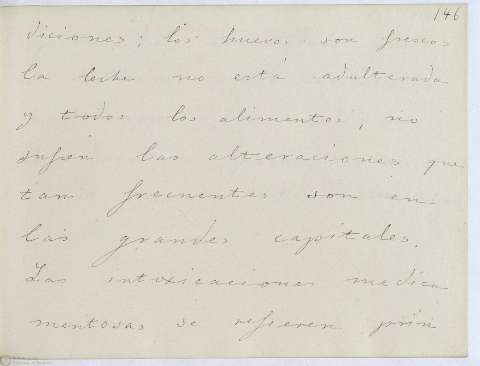 146
diciones; los huevos son frescos
la leche no está adulterada
y todos los alimentos, no
sufren las alteraciones que
tan frecuentes son en
las grandes capitales.
Las intoxicaciones medica
mentosas se refieren prin